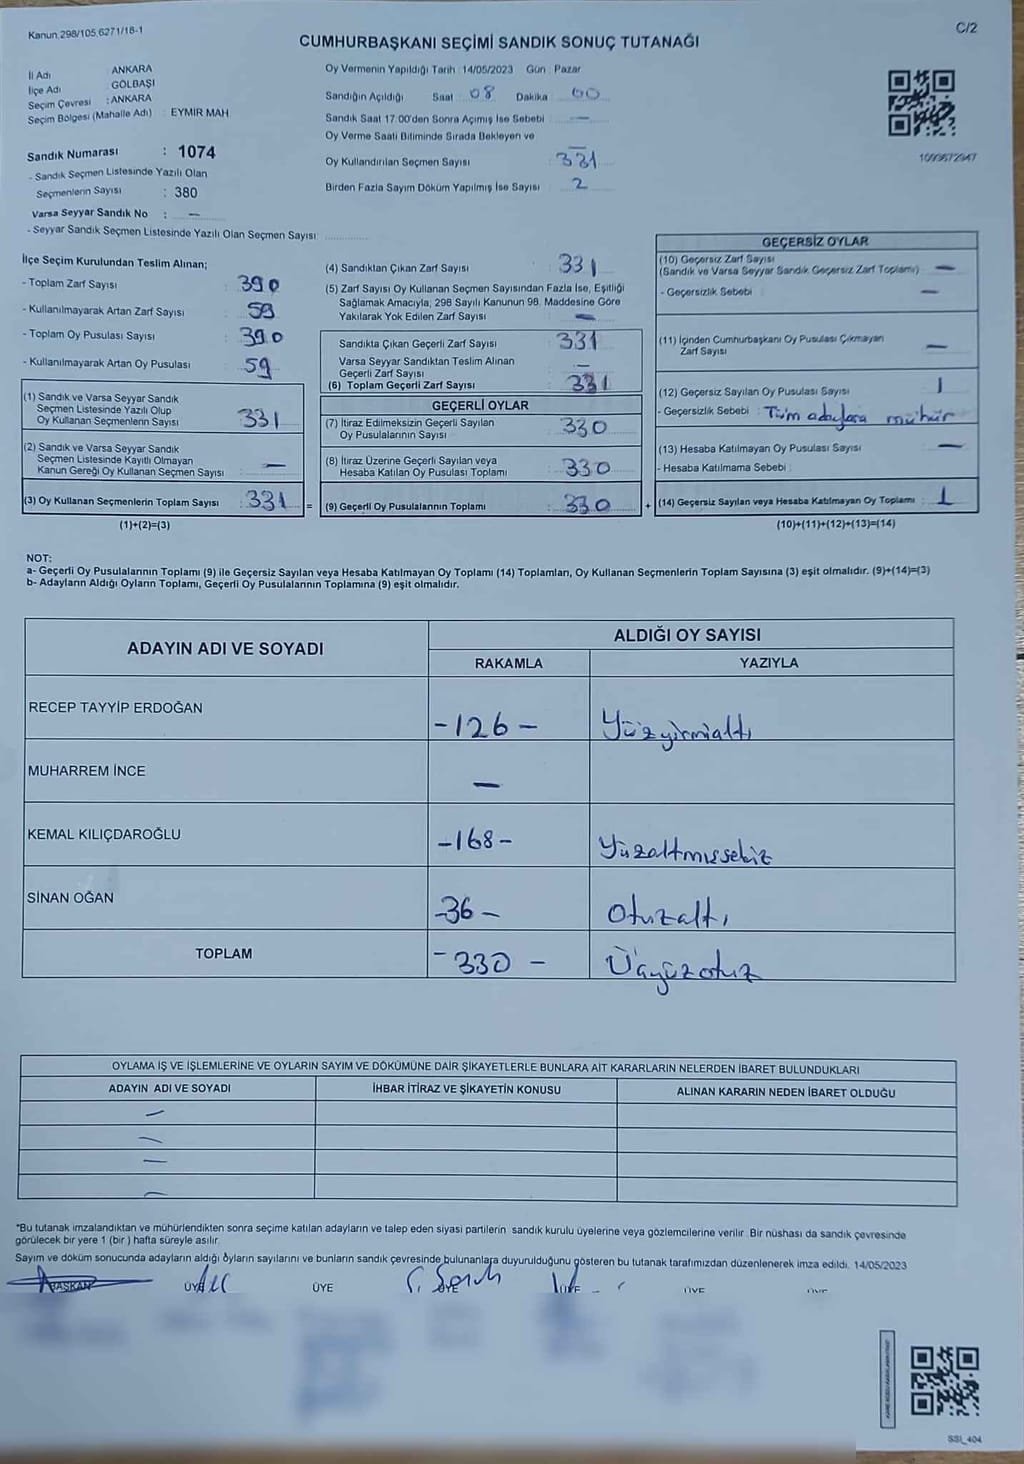 Kanun 298/105,6271/18-1
C/2
CUMHURBAŞKANI SEÇİMİ SANDIK SONUÇ TUTANAĞI
İl Adı ANKARA
İlçe Adı GÖLBAŞI
Seçim Çevresi : ANKARA
Seçim Bölgesi (Mahalle Adı) : EYMİR MAH
Sandık Numarası : 1074
- Sandık Seçmen Listesinde Yazılı Olan
Seçmenlerin Sayısı : 380
Varsa Seyyar Sandık No : —
- Seyyar Sandık Seçmen Listesinde Yazılı Olan Seçmen Sayısı
Oy Vermenin Yapıldığı Tarih : 14/05/2023 Gün : Pazar
Sandığın Açıldığı Saat 08 Dakika 00
Sandık Saat 17:00'den Sonra Açmış İse Sebebi —
Oy Verme Saati Bitiminde Sırada Bekleyen ve
Oy Kullandırılan Seçmen Sayısı : 331
Birden Fazla Sayım Döküm Yapılmış İse Sayısı : 2
1093672947
İlçe Seçim Kurulundan Teslim Alınan;
- Toplam Zarf Sayısı : 390
- Kullanılmayarak Artan Zarf Sayısı : 59
- Toplam Oy Pusulası Sayısı : 390
- Kullanılmayarak Artan Oy Pusulası : 59
(1) Sandık ve Varsa Seyyar Sandık
Seçmen Listesinde Yazılı Olup
Oy Kullanan Seçmenlerin Sayısı : 331
(2) Sandık ve Varsa Seyyar Sandık
Seçmen Listesinde Kayıtlı Olmayan
Kanun Gereği Oy Kullanan Seçmen Sayısı : —
(3) Oy Kullanan Seçmenlerin Toplam Sayısı : 331 =
(1)+(2)=(3)
(4) Sandıktan Çıkan Zarf Sayısı : 331
(5) Zarf Sayısı Oy Kullanan Seçmen Sayısından Fazla İse, Eşitliği
Sağlamak Amacıyla; 298 Sayılı Kanunun 98. Maddesine Göre
Yakılarak Yok Edilen Zarf Sayısı : —
Sandıkta Çıkan Geçerli Zarf Sayısı : 331
Varsa Seyyar Sandıktan Teslim Alınan
Geçerli Zarf Sayısı : —
(6) Toplam Geçerli Zarf Sayısı : 331
GEÇERLİ OYLAR
(7) İtiraz Edilmeksizin Geçerli Sayılan
Oy Pusulalarının Sayısı : 330
(8) İtiraz Üzerine Geçerli Sayılan veya
Hesaba Katılan Oy Pusulası Toplamı : 330
(9) Geçerli Oy Pusulalarının Toplamı : 330 +
GEÇERSİZ OYLAR
(10) Geçersiz Zarf Sayısı
(Sandık ve Varsa Seyyar Sandık Geçersiz Zarf Toplamı) —
- Geçersizlik Sebebi : —
(11) İçinden Cumhurbaşkanı Oy Pusulası Çıkmayan
Zarf Sayısı : —
(12) Geçersiz Sayılan Oy Pusulası Sayısı : 1
- Geçersizlik Sebebi : Tüm adaylara mühür
(13) Hesaba Katılmayan Oy Pusulası Sayısı : —
- Hesaba Katılmama Sebebi :
(14) Geçersiz Sayılan veya Hesaba Katılmayan Oy Toplamı : 1
(10)+(11)+(12)+(13)=(14)
NOT:
a- Geçerli Oy Pusulalarının Toplamı (9) ile Geçersiz Sayılan veya Hesaba Katılmayan Oy Toplamı (14) Toplamları, Oy Kullanan Seçmenlerin Toplam Sayısına (3) eşit olmalıdır. (9)+(14)=(3)
b- Adayların Aldığı Oyların Toplamı, Geçerli Oy Pusulalarının Toplamına (9) eşit olmalıdır.
ADAYIN ADI VE SOYADI ALDIĞI OY SAYISI
RAKAMLA YAZIYLA
RECEP TAYYİP ERDOĞAN -126- Yüzyirmialtı
MUHARREM İNCE —
KEMAL KILIÇDAROĞLU -168- Yüzaltmışsekiz
SİNAN OĞAN -36- Otuzaltı
TOPLAM -330- Üçyüzotuz
OYLAMA İŞ VE İŞLEMLERİNE VE OYLARIN SAYIM VE DÖKÜMÜNE DAİR ŞİKAYETLERLE BUNLARA AİT KARARLARIN NELERDEN İBARET BULUNDUKLARI
ADAYIN ADI VE SOYADI İHBAR İTİRAZ VE ŞİKAYETİN KONUSU ALINAN KARARIN NEDEN İBARET OLDUĞU
—
—
—
—
*Bu tutanak imzalandıktan ve mühürlendikten sonra seçime katılan adayların ve talep eden siyasi partilerin sandık kurulu üyelerine veya gözlemcilerine verilir. Bir nüshası da sandık çevresinde
görülecek bir yere 1 (bir) hafta süreyle asılır.
Sayım ve döküm sonucunda adayların aldığı oyların sayılarını ve bunların sandık çevresinde bulunanlara duyurulduğunu gösteren bu tutanak tarafımızdan düzenlenerek imza edildi. 14/05/2023
BAŞKAN ÜYE ÜYE ÜYE ÜYE ÜYE ÜYE
SSI_404